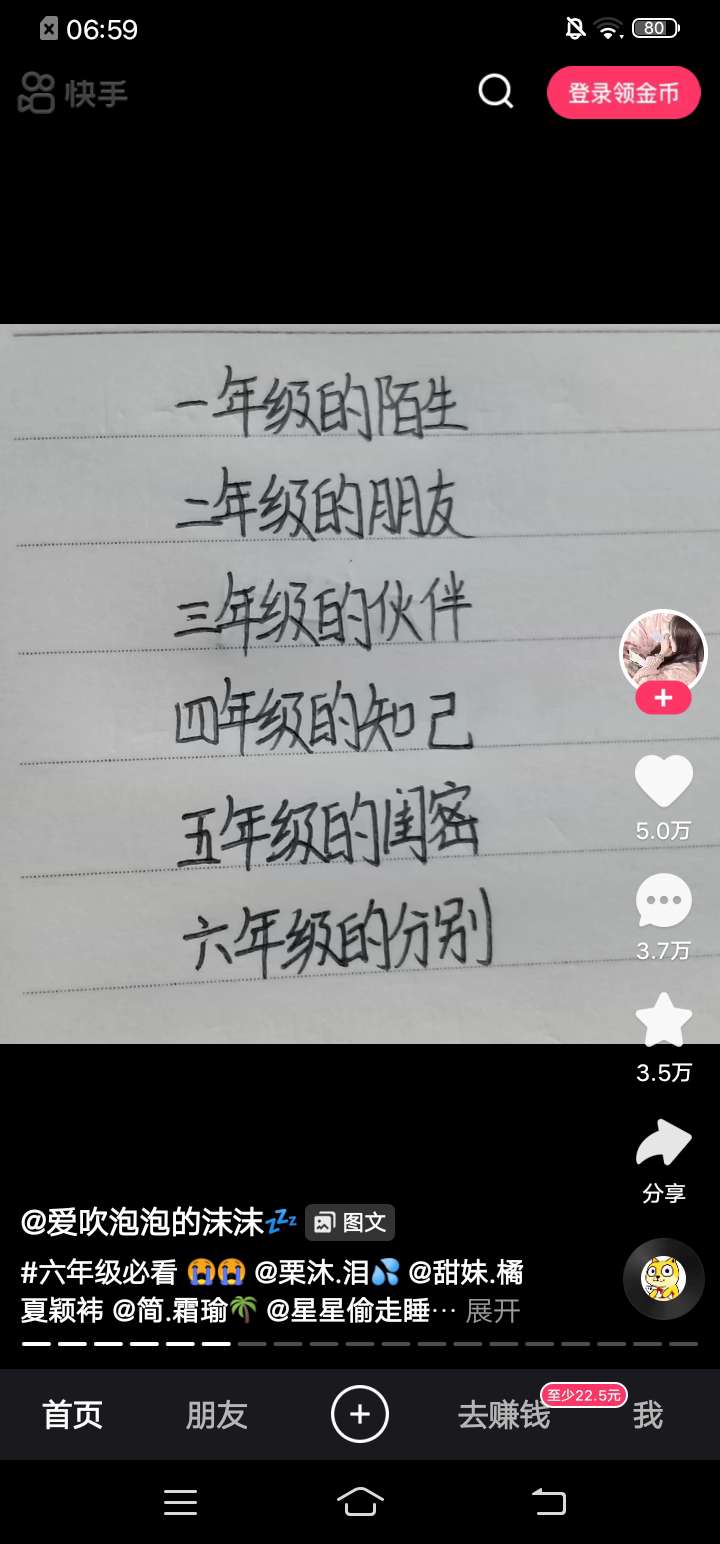 06:59
80
快手
登录领金币
一年级的陌生
二年级的朋友
三年级的伙伴
四年级的知己
五年级的闺密
六年级的分别
5.0万
3.7万
3.5万
分享
@爱吹泡泡的沫沫💤 图文
#六年级必看 😭😭 @栗沐.泪💦 @甜妹.橘
夏颖祎 @简.霜瑜🌴 @星星偷走睡… 展开
首页
朋友
去赚钱
至少22.5元
我